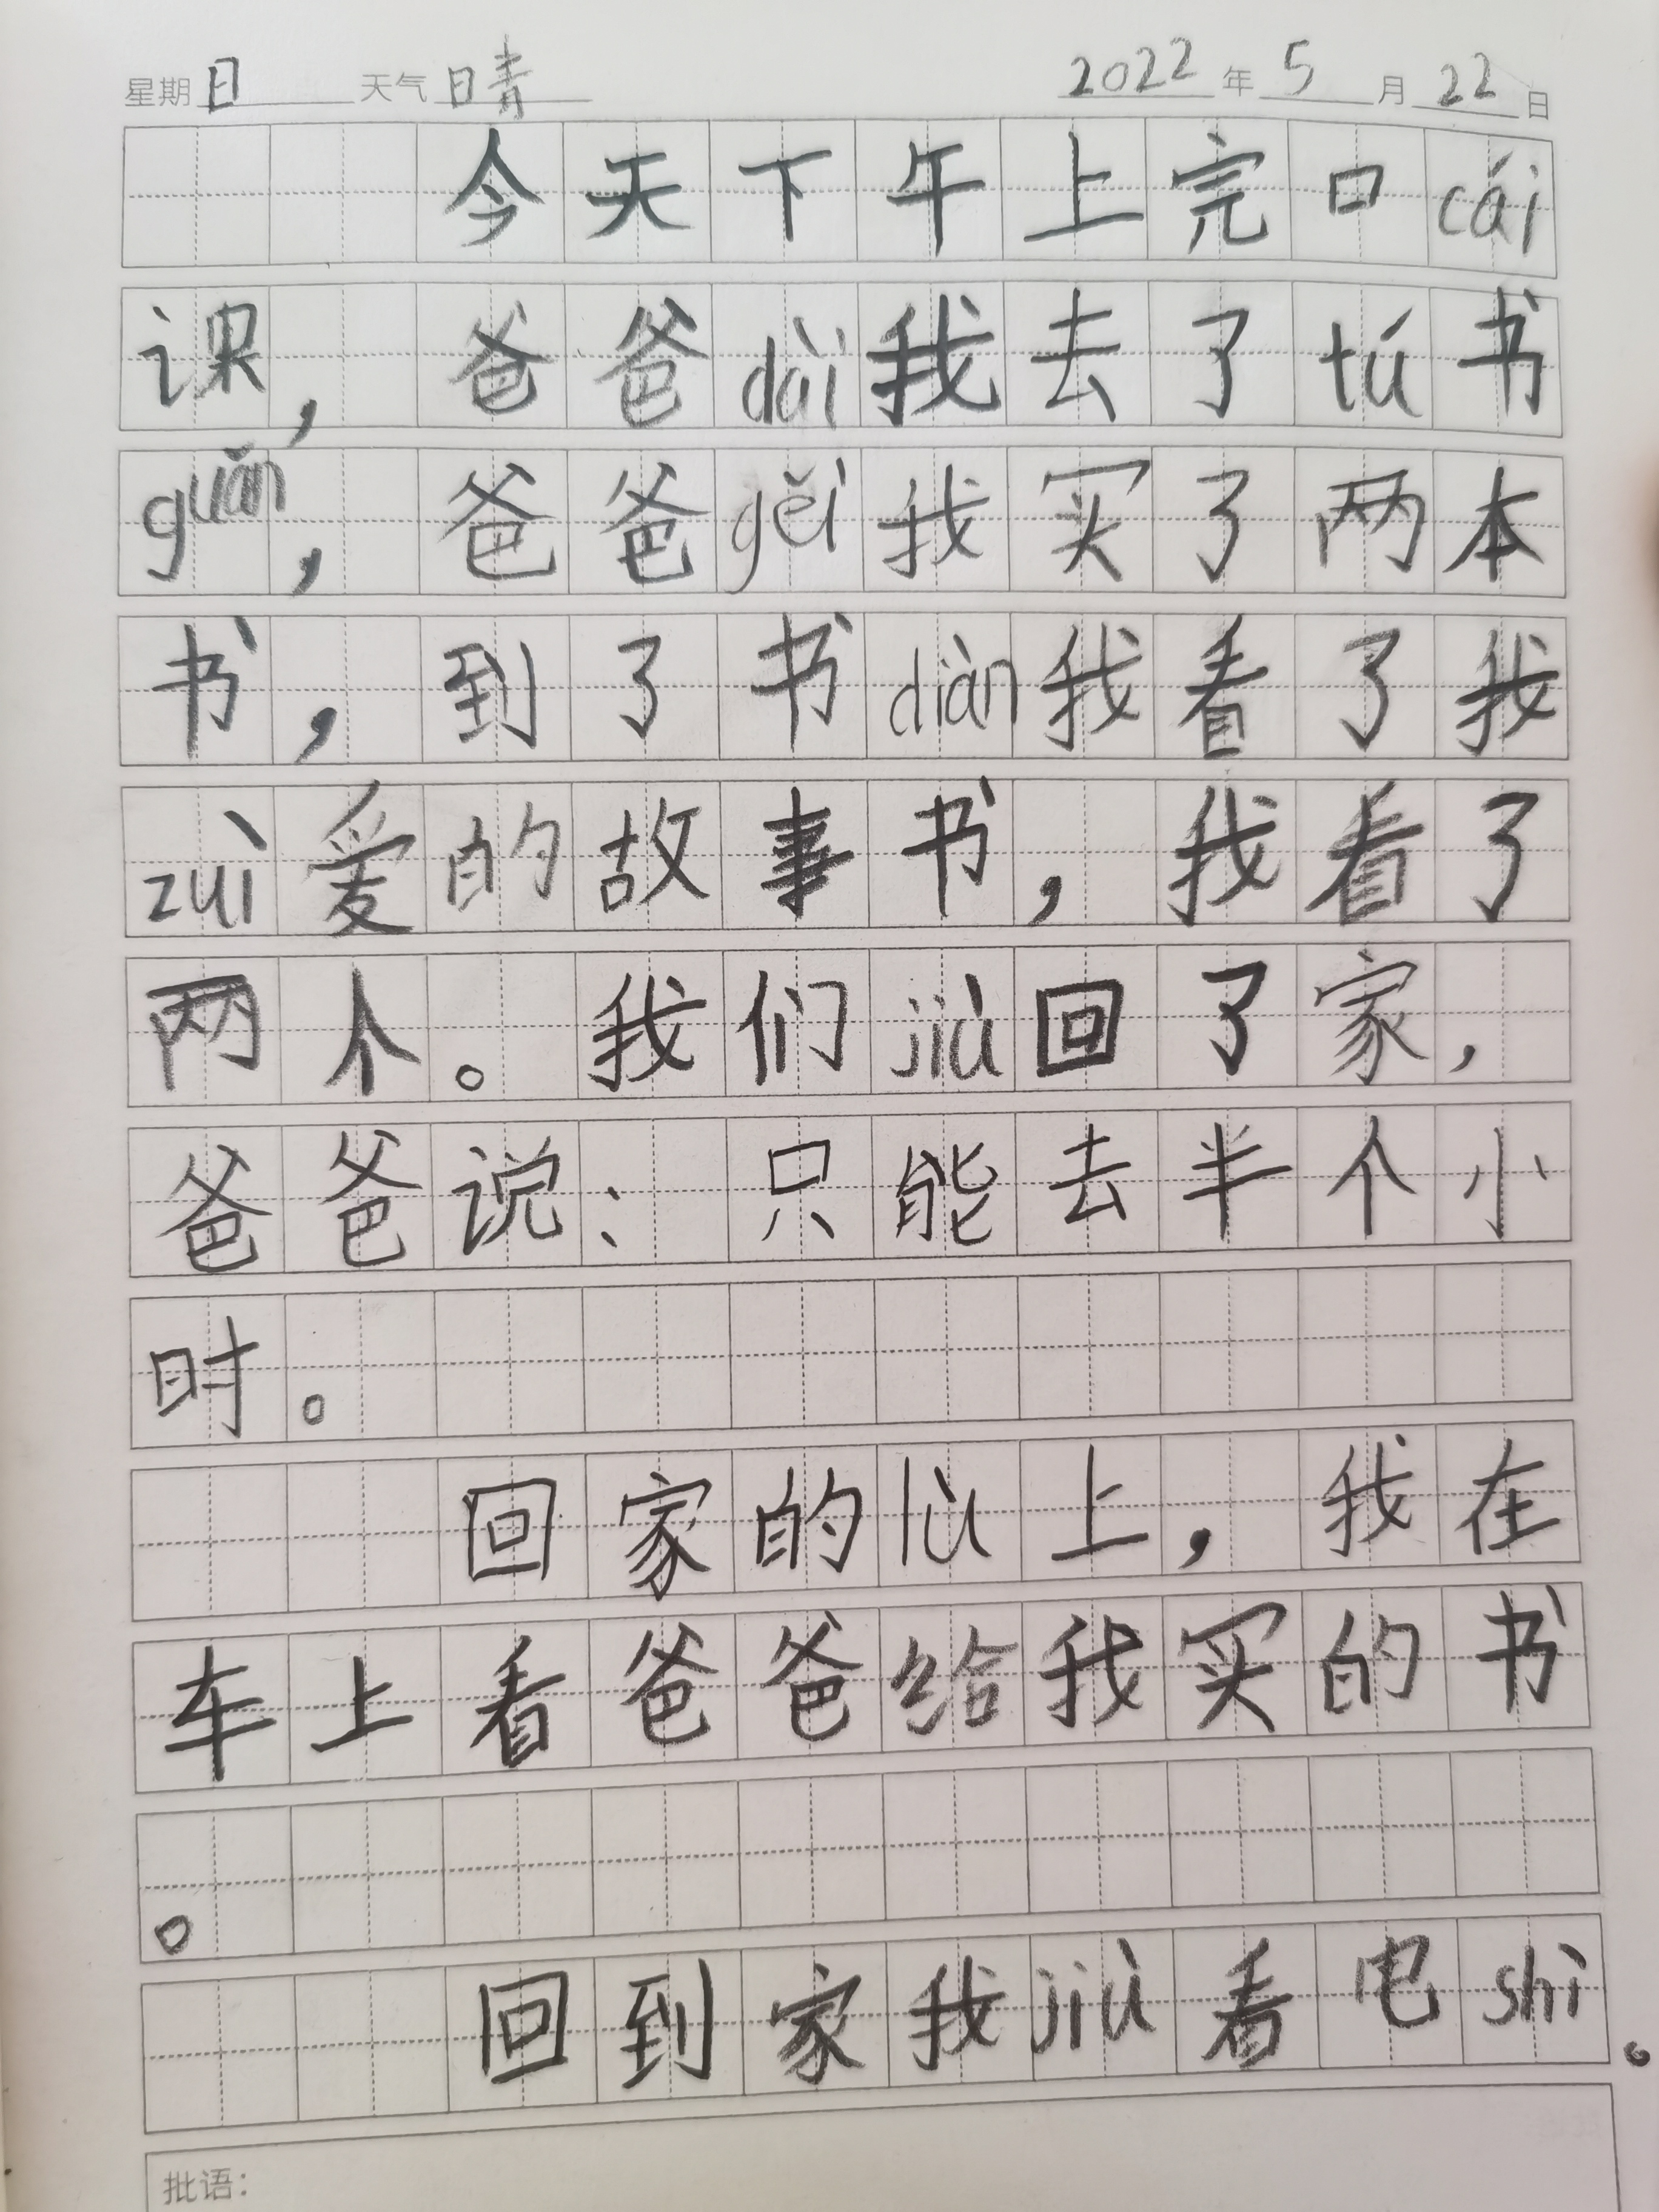 星期日 天气晴 2022年5月22日
今天下午上完口cái
课，爸爸dài我去了tú书
guǎn，爸爸gěi我买了两本
书，到了书diàn我看了我
zuì爱的故事书，我看了
两个。我们jiù回了家，
爸爸说：只能去半个小
时。
回家的lù上，我在
车上看爸爸给我买的书
。
回到家我jiù看电shì。
批语：